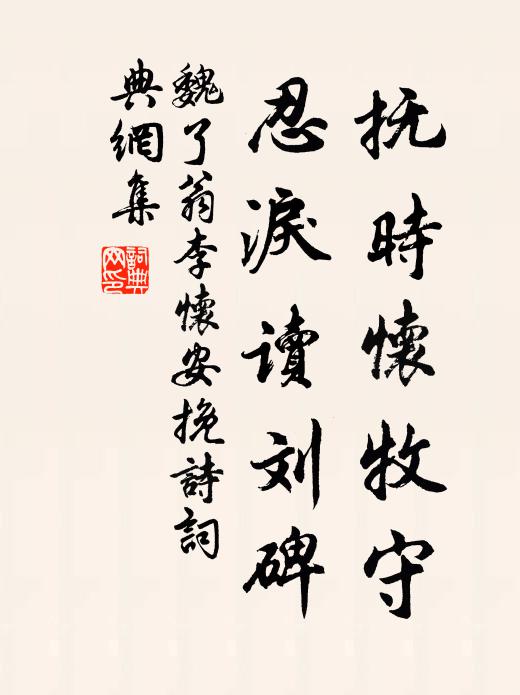 抚時懷牧守
忍淚读刘碑
魏了翁李懷安挽詩詞
典網集
詞典网印